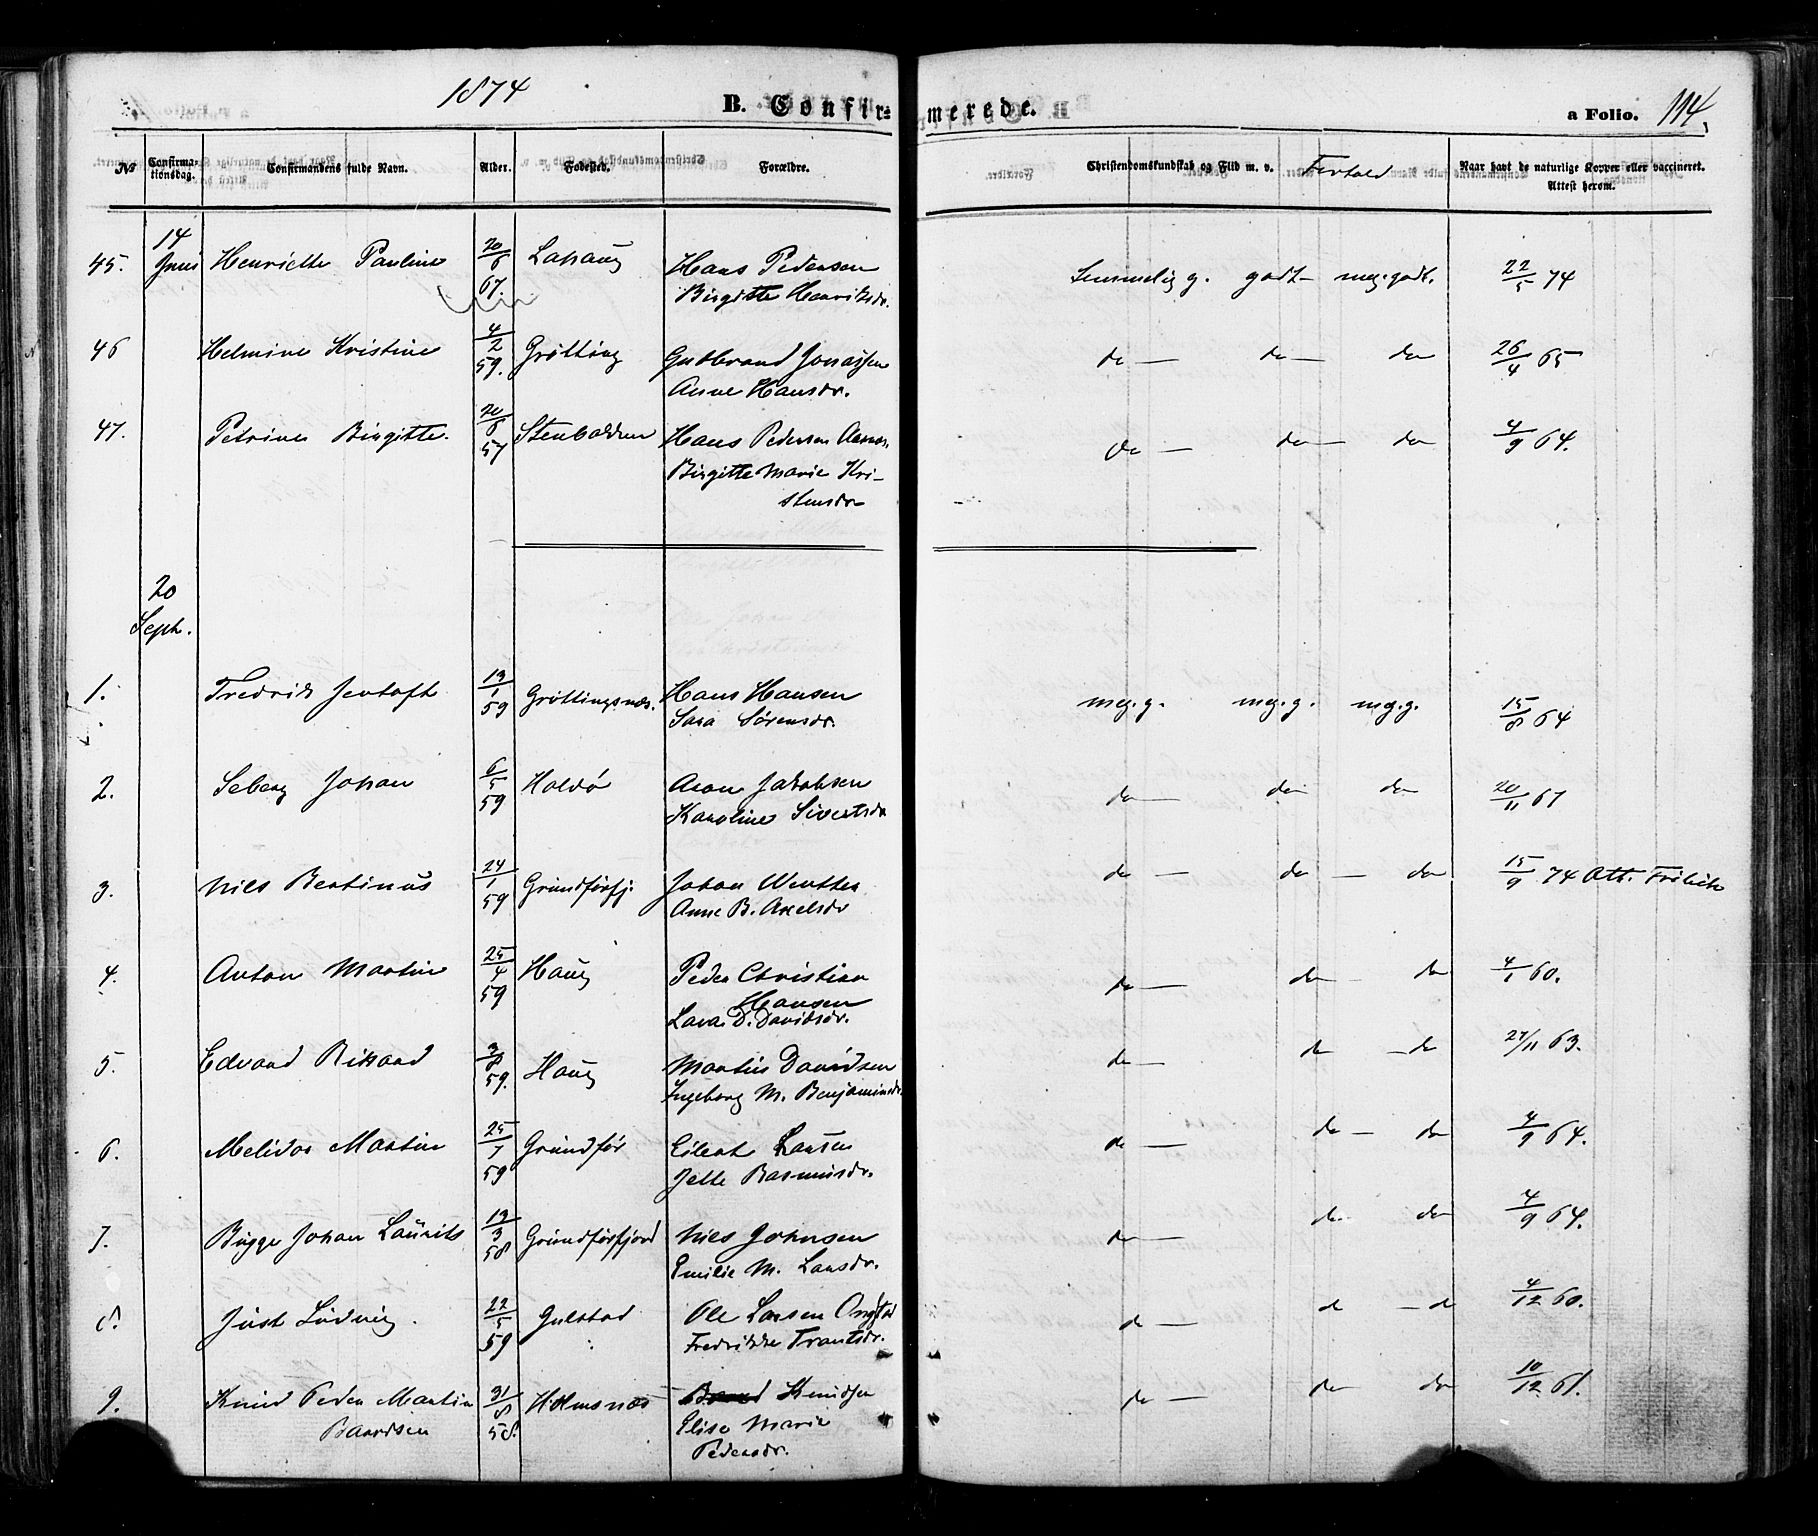 1874
B. Confir=
merede.
a Folio. 114.
No
Confirma-
tionsdag.
Confirmandens fulde Navn.
Alder.
Fødested.
Forældre.
Christendomskundskab og Flid m. v.
Forhold
Naar havt de naturlige Kopper eller vaccineret.
Attest herom.
14
Juni
45. Henriette Pauline 20/6 Laxaug Hans Pedersen
Birgitte Henriksdr.
g. godt- meg. godt. 22/5 74
46 Helmine Kristine 4/2 59. Grötting Gudbrand Jonassen
Anne Hansdr.
do — do — do 26/4 65
47. Petrine Birgitte. 20/6 57 Hans Pedersen
Birgitte Marie Kri-
stensdr
do — do — do 4/9 64.
20
Septr.
1. Fredrik Jentoft 13/1 59 Gröttingsnæs. Hans Hansen
Sara Sörensdr.
meg. g. meg. g. meg. g. 15/8 64
2. Seberg Johan 6/5 59 Holdö Aron Jakobsen
Karoline Sivertsdr
do — do do 20/11 67
3. Nils Bertinus 24/1 59 Grundförfj. Johan Wenther
Anne B. Axelsdr
do — do — do 15/9 74 Att. Frölich
4. Anton Martin 25/4 59 Haug Peder Christian
Hansen
Lava D. Davidsdr.
do — do — do 4/1 60.
5. Edvard Rikard 3/8 59. Haug Martin Davidsen
Ingeborg M. Benjaminsdr.
do — do — do 27/11 63.
6. Melidor Martin 25/7 59 Grundför Eilert Larsen
Jette Rasmusdr.
do — do — do 4/9 64.
7. Bugge Johan Laurits 13/3 58 Grundförfjord Nils Johnsen
Emilie M. Larsdr.
do — do do 4/9 64.
8. Just Ludvig. 22/5 59 Gulstad Ole Larsen
Fredrikke Trantsdr.
do — do — do 4/12 60.
9. Knud Peder Martin 31/8 58. Holmsnæs Knudsen
Baardsen
Elise Marie
Pedersdr.
do — do do 10/12 61.